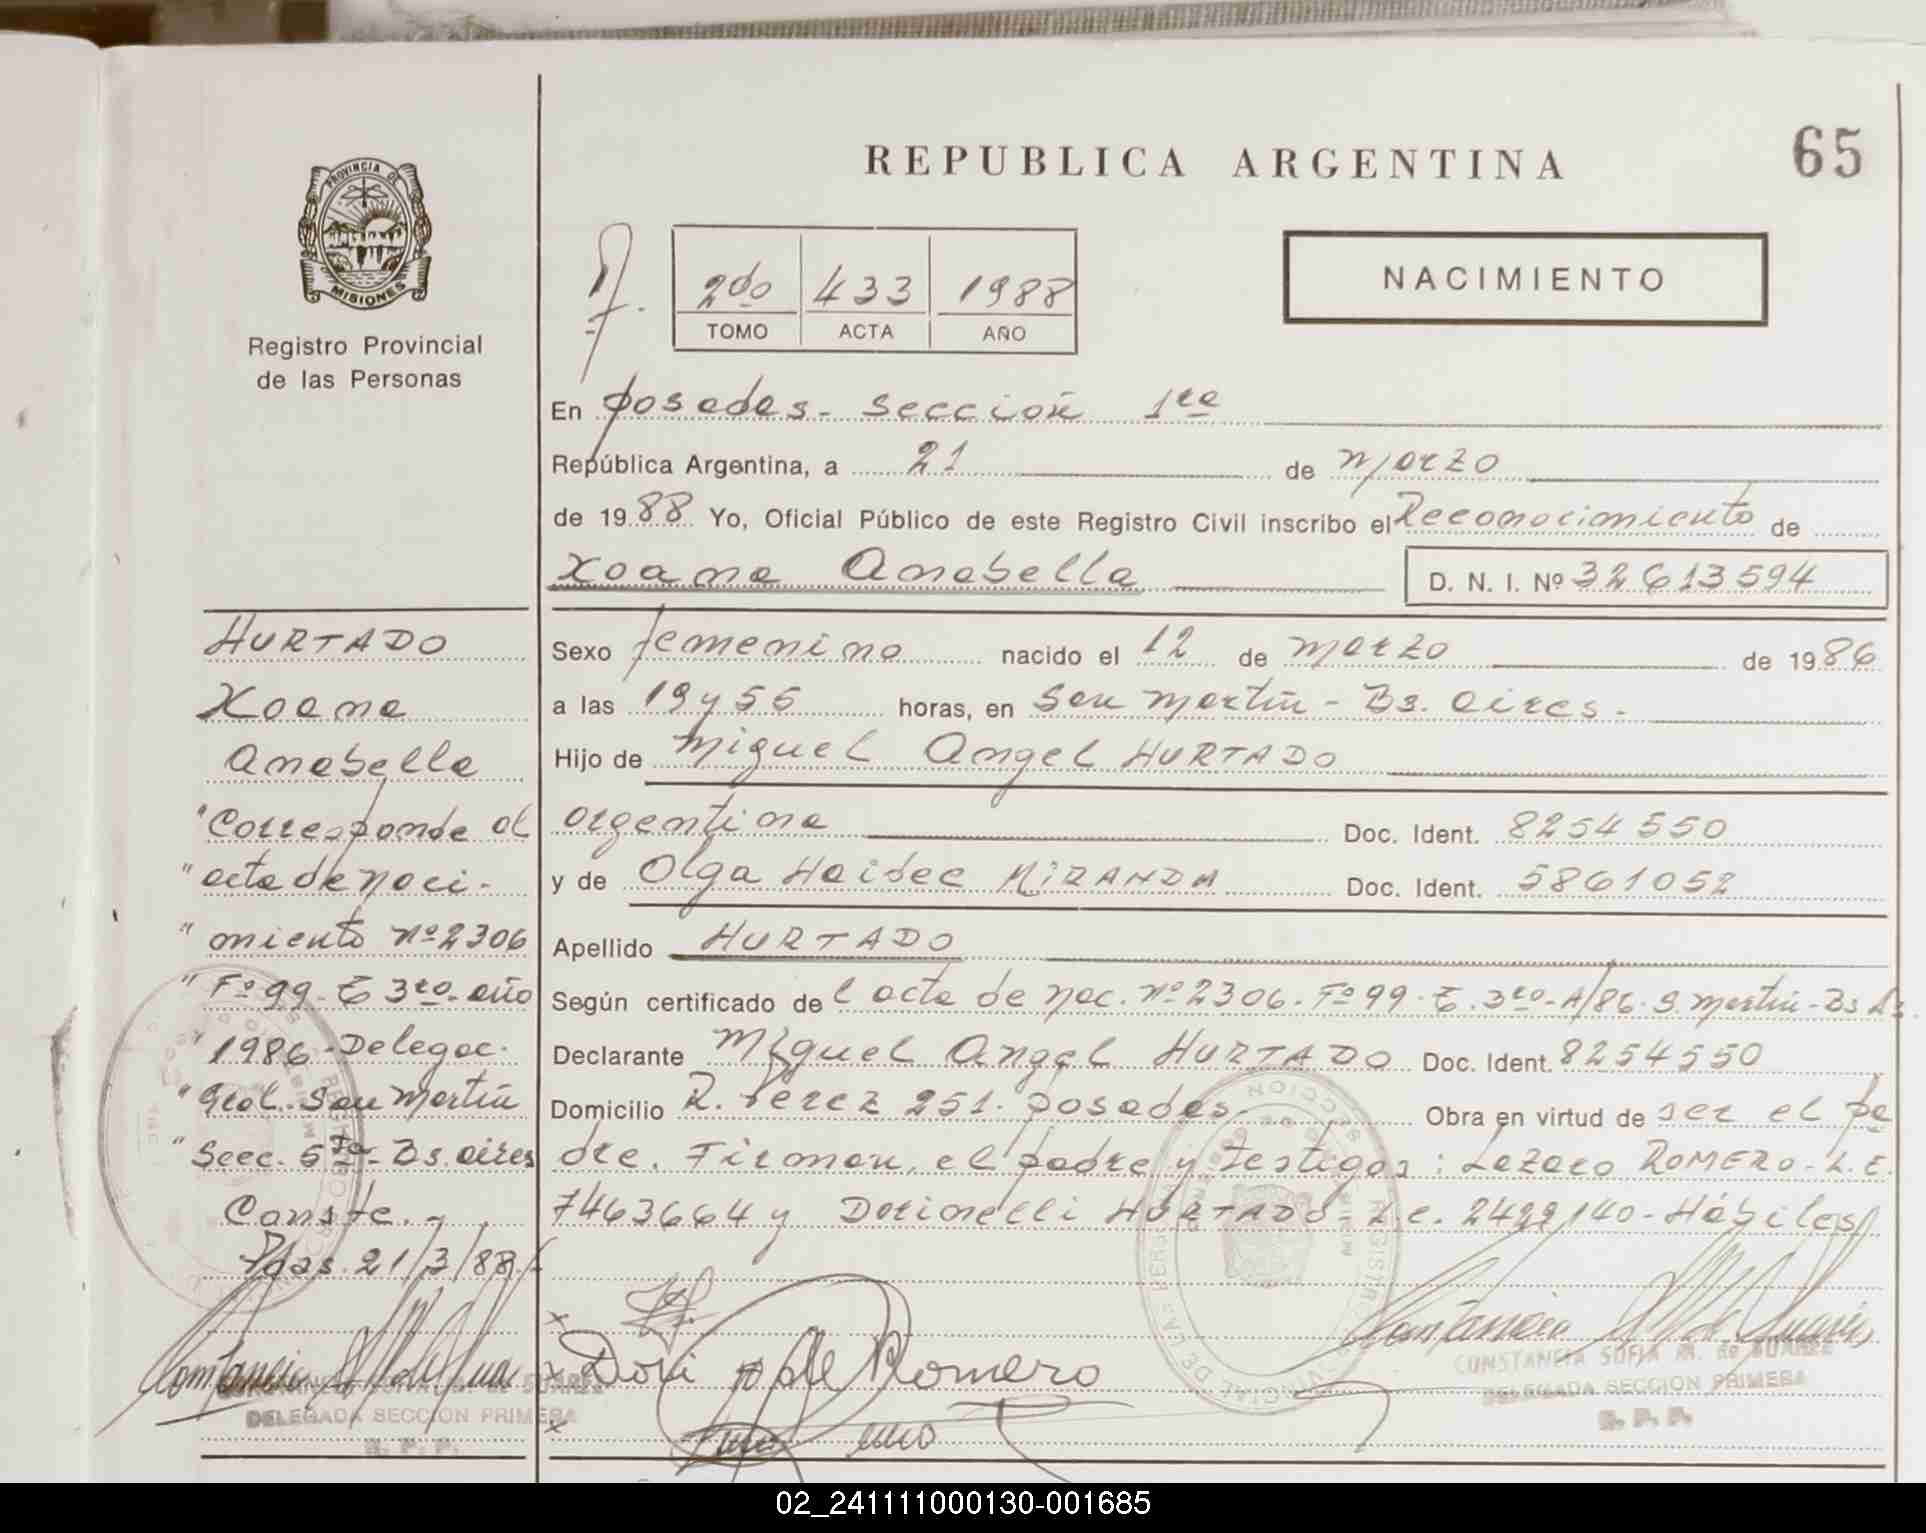 REPUBLICA ARGENTINA
65
PROVINCIA DE
MISIONES
Registro Provincial
de las Personas
2do 433 1988
TOMO ACTA AÑO
NACIMIENTO
En Posadas - Sección 1ra
República Argentina, a 21 de Marzo
de 1988 Yo, Oficial Público de este Registro Civil inscribo el Reconocimiento de
Xoana Anabella D. N. I. Nº 32613594
Sexo femenino nacido el 12 de Marzo de 1986
a las 19 y 55 horas, en San Martín - Bs. Aires.-
Hijo de Miguel Angel HURTADO
argentina Doc. Ident. 8254550
y de Olga Haidee MIRANDA Doc. Ident. 5861052
Apellido HURTADO
Según certificado del acta de nac. Nº 2306. Fº 99. T. 3ro - A/86. S. Martín - Bs As.
Declarante Miguel Angel HURTADO Doc. Ident. 8254550
Domicilio R. Perez 251. Posadas. Obra en virtud de ser el pa
dre. Firman, el padre y testigos: Lazaro ROMERO - L.E.
7463664 y Dorinelli HURTADO - L.C. 2422140 - Hábiles
HURTADO
Xoana
Anabella
"Corresponde al
"acta de naci-
"miento Nº 2306
"Fº 99 - T 3ro - año
"1986 - Delegac.
"Gral. San Martín
"Secc. 5ta - Bs. aires
Conste.-
Pdas. 21/3/88
Dori H de Romero
CONSTANCIA SOFIA M. de SUAREZ
DELEGADA SECCION PRIMERA
R. P. P.
DELEGADA SECCION PRIMERA
R. P. P.
02_241111000130-001685